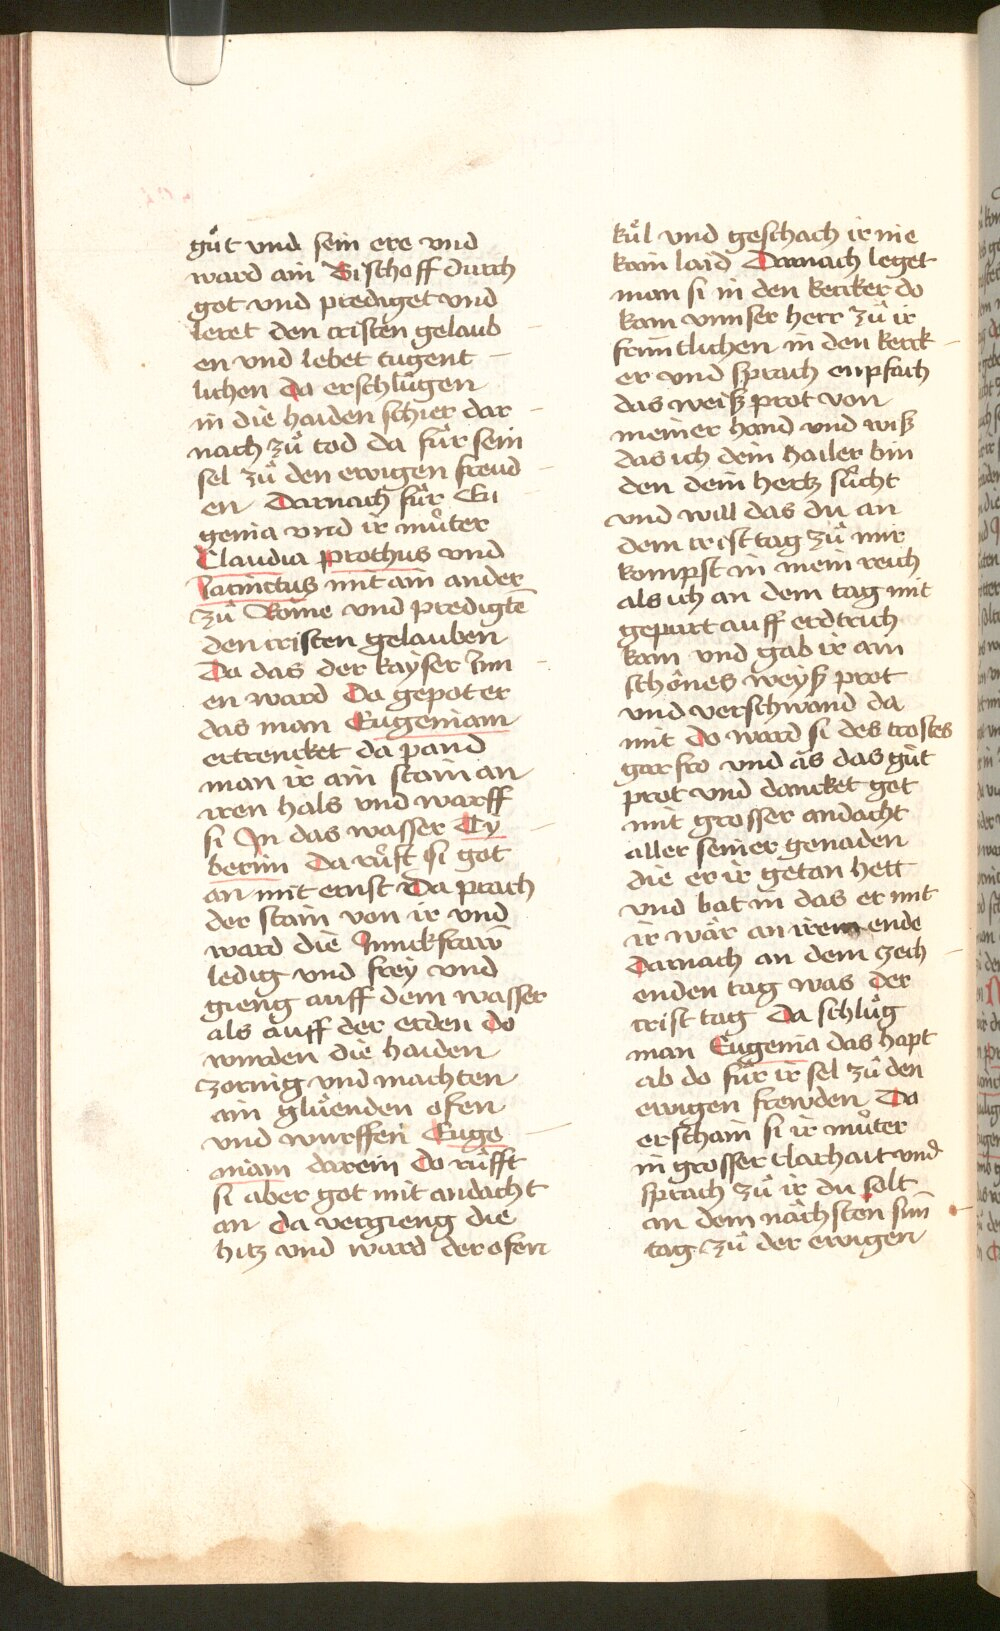 guͦt vnd sein ere vnd
ward ain Bischoff durch
got vnd prediget vnd
leret den cristen gelaub
en vnd lebet tugent
lichen da erschluͦgen
in die haiden schier dar
nach zuͦ tod da fuͦr sein
sel zuͦ den ewigen freud
en Darnach fuͦr Eu
genia vnd ir muͦter
Claudia prothus vnd
Jacinctus mit ain ander
zuͦ Rome vnd predigtē
den cristen gelauben
Da das der kayser Inn
en ward Da gepot er
das man Eugeniam
ertrencket da pand
man ir ain stain an
iren hals vnd warff
si In das wasser Ty
berim Da ruͦft si got
an mit ernst Da prach
der stain von ir vnd
ward die Junckfraw
ledig vnd frey vnd
gieng auff dem wasser
als auff der erden Do
wurden die haiden
zornig vnd machten
ain gluͤenden ofen
vnd wurffen Euge
niam darein Do ruͦfft
si aber got mit andacht
an Da vergieng die
hitz vnd ward der ofen
kuͤl vnd geschach ir nie
kain laid Darnach leget
man si in den kercker do
kam vnnser herr zuͦ ir
frintlichen in den kerck
er vnd sprach enpfach
das weiß prot von
meiner hand vnd wiß
das ich dein hailer bin
den dein hertz suͦcht
vnd will das du an
dem cristtag zuͦ mir
kompst in mein reich
als ich an dem tag mit
gepurt auff erdtrich
kam vnd gab ir ain
schoͤnes weyß prot
vnd verschwand da
mit do ward si des trostes
gar fro vnd as das guͦt
prot vnd dancket got
mit grosser andacht
aller seiner genaden
die er ir getan hett
vnd bat in das er mit
ir waͤr an irem ende
Darnach an dem zech
enden tag was der
crist tag Da schluͦg
man Eugenia das hapt
ab do fuͦr ir sel zuͦ den
ewigen frewden Do
erschain si ir muͦter
in grosser clarhait vnd
sprach zuͦ ir du solt
an dem naͤchsten sun̄
tag zuͦ der ewigen